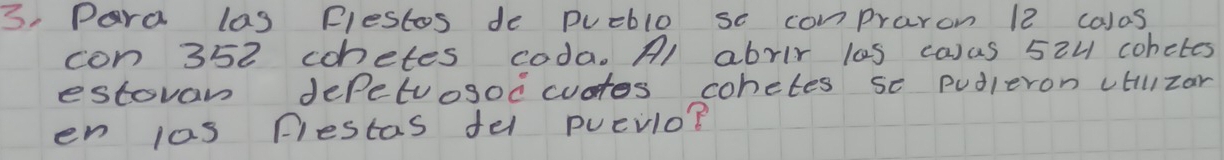 3. Para las fiestas de pueblo se compraron 12 cajas
con 352 cohetes coda. Al abrir las cajas 524 cohetes
estovan defetuoso¿ cuotos cohetes se pudieron utilizar
en las fiestas del puevlo?